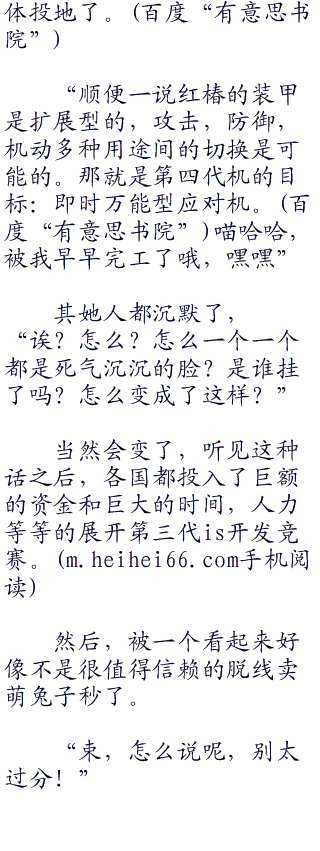 体投地了。(百度“有意思书
院”)
“顺便一说红椿的装甲
是扩展型的，攻击，防御，
机动多种用途间的切换是可
能的。那就是第四代机的目
标：即时万能型应对机。(百
度“有意思书院”)喵哈哈，
被我早早完工了哦，嘿嘿”
其她人都沉默了，
“诶？怎么？怎么一个一个
都是死气沉沉的脸？是谁挂
了吗？怎么变成了这样？”
当然会变了，听见这种
话之后，各国都投入了巨额
的资金和巨大的时间，人力
等等的展开第三代is开发竞
赛。(m.heihei66.com手机阅
读)
然后，被一个看起来好
像不是很值得信赖的脱线卖
萌兔子秒了。
“束，怎么说呢，别太
过分！”